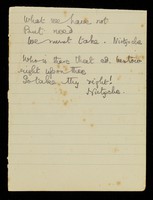 What we have not
That need
We must take. Nietzsche.
Who is there that can bestow
right upon thee
So take thy right!
Nietzsche.